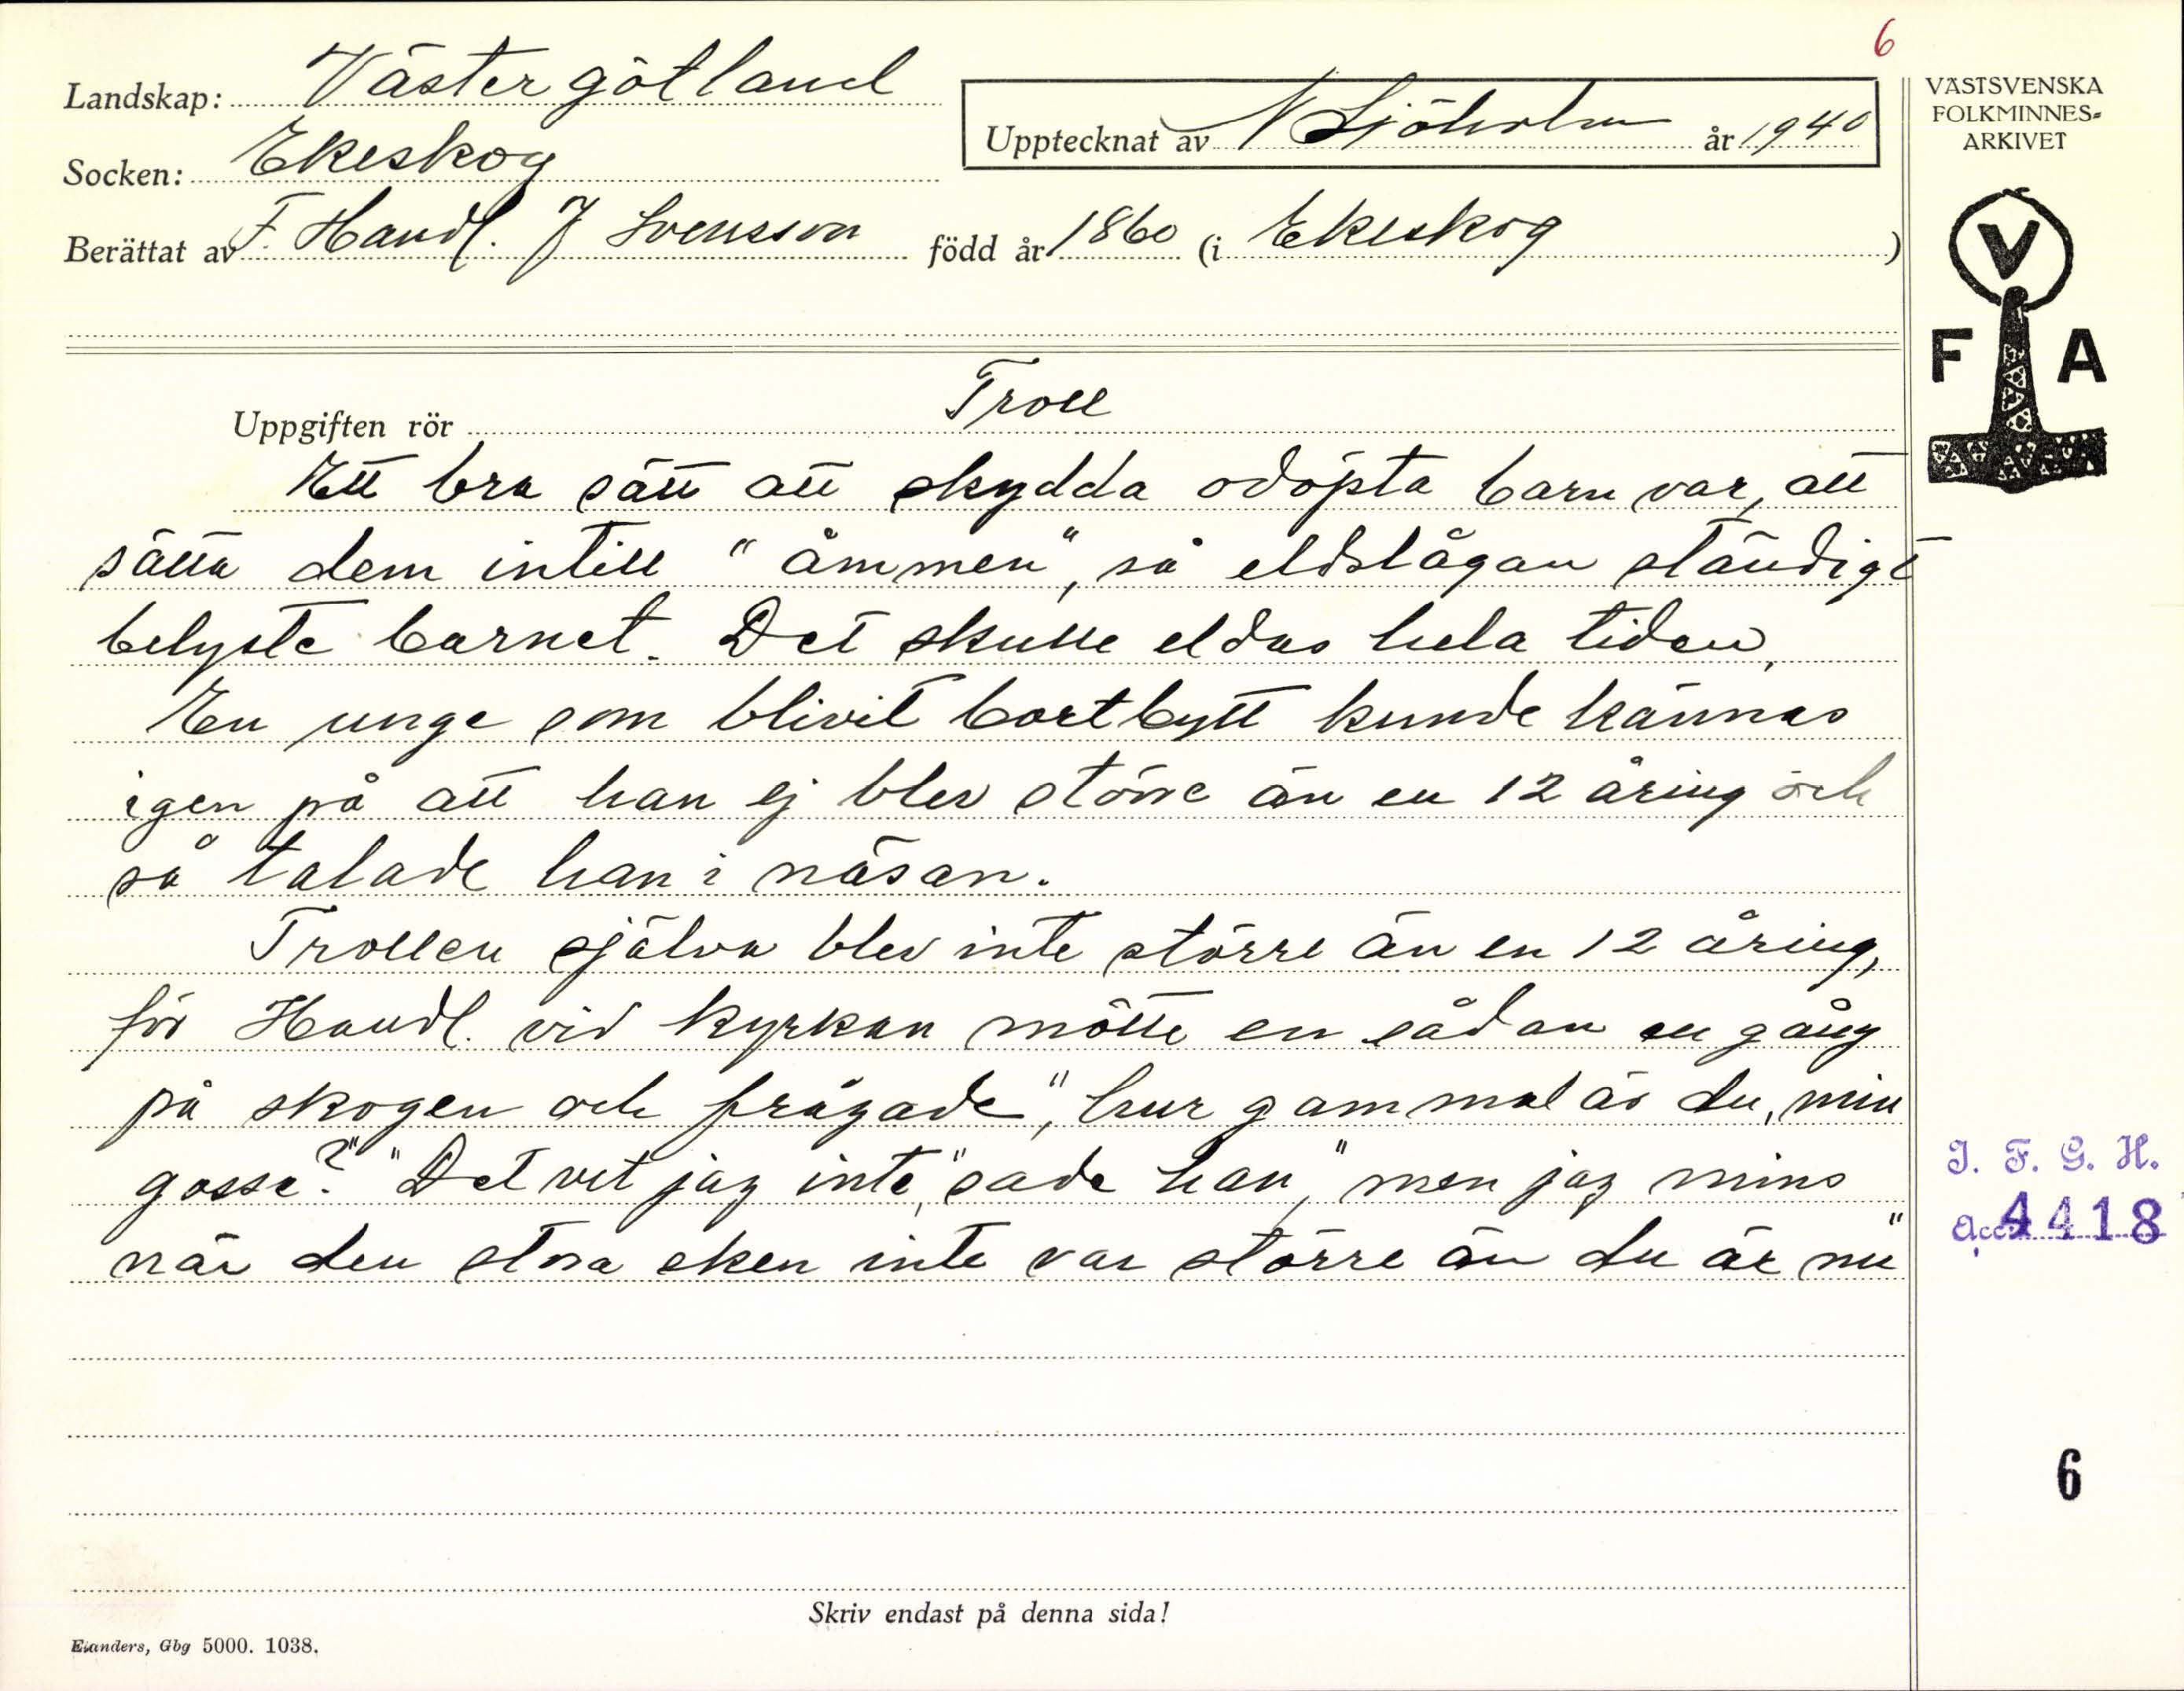 6
Landskap: Västergötland
Socken: Ekeskog
Upptecknat av N Sjöholm år 1940
Berättat av F. Handl. J Svensson född år 1860 (i Ekeskog )
VÄSTSVENSKA
FOLKMINNES=
ARKIVET
V
F A
Uppgiften rör Troll
Ett bra sätt att skydda odöpta barn var, att
sätta dem intill "åmmen", så eldslågan ständigt
belyste barnet. Det skulle eldas hela tiden.
En unge som blivit bortbytt kunde kännas
igen på att han ej blev större än en 12 åring och
så talade han i näsan.
Trollen själva blev inte större än en 12 åring,
för Handl. vid kyrkan mötte en sådan en gång
på skogen och frågade, "hur gammal är du, min
gosse?" "Det vet jag inte," sade han, "men jag mins
när den stora eken inte var större än du är nu"
I. F. G. H.
Acc. 4418
6
Skriv endast på denna sida!
Elanders, Gbg 5000. 1038.